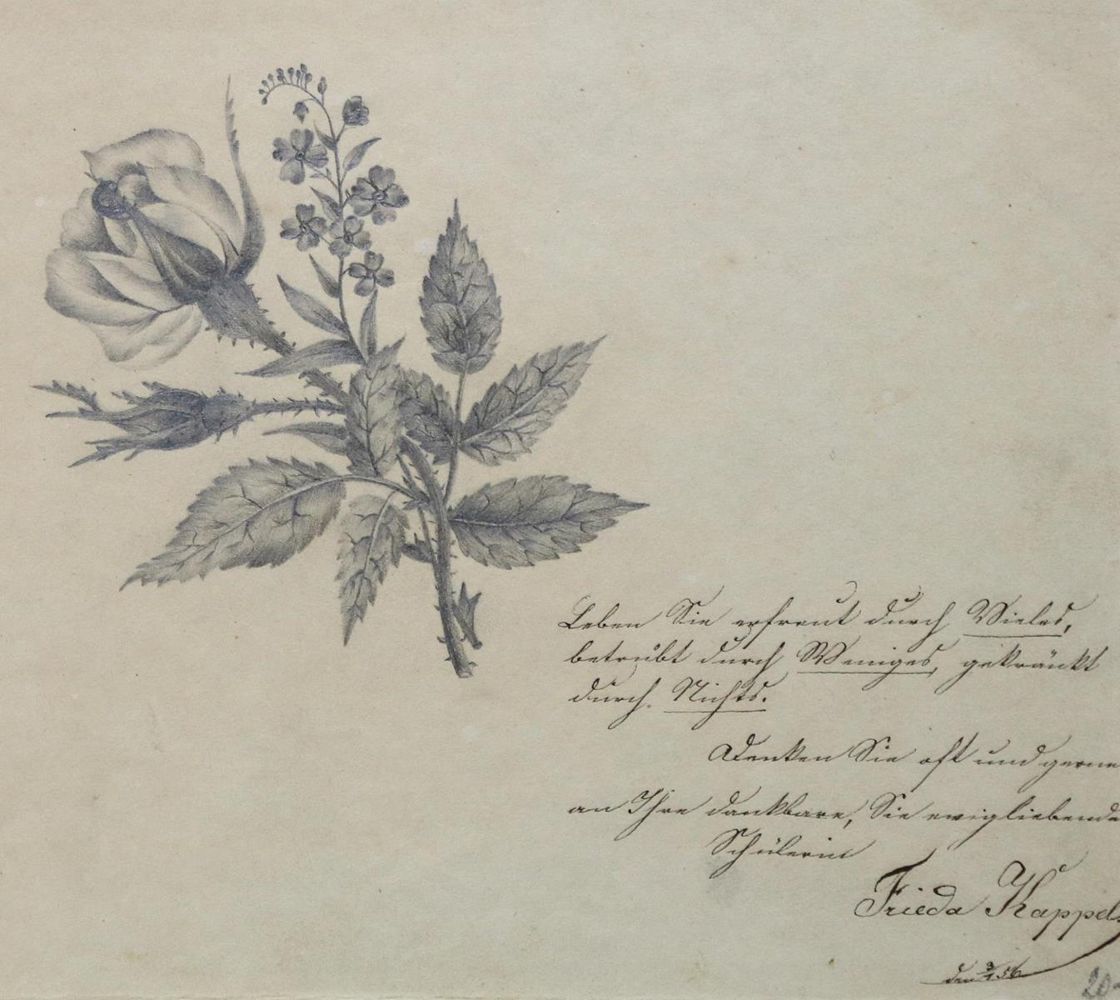 Leben Sie erfreut durch Vieles,
betrübt durch Weniges, gekränkt
durch Nichts.
Denken Sie oft und gerne
an Ihre dankbare, Sie ewigliebende
Schülerin
Frieda Kappel
den 3/4 56
20